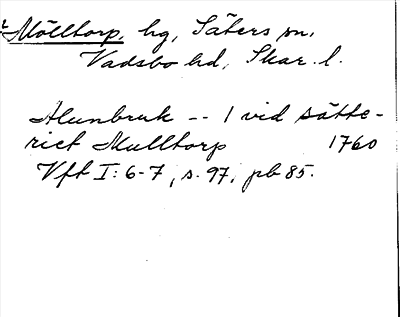 Mölltorp, hg, Säters sn,
Vadsbo hd, Skar. l.
Alunbruk -- / vid sätte-
riet Mulltorp 1760
Vft I: 6-7, s. 97, pb 85.